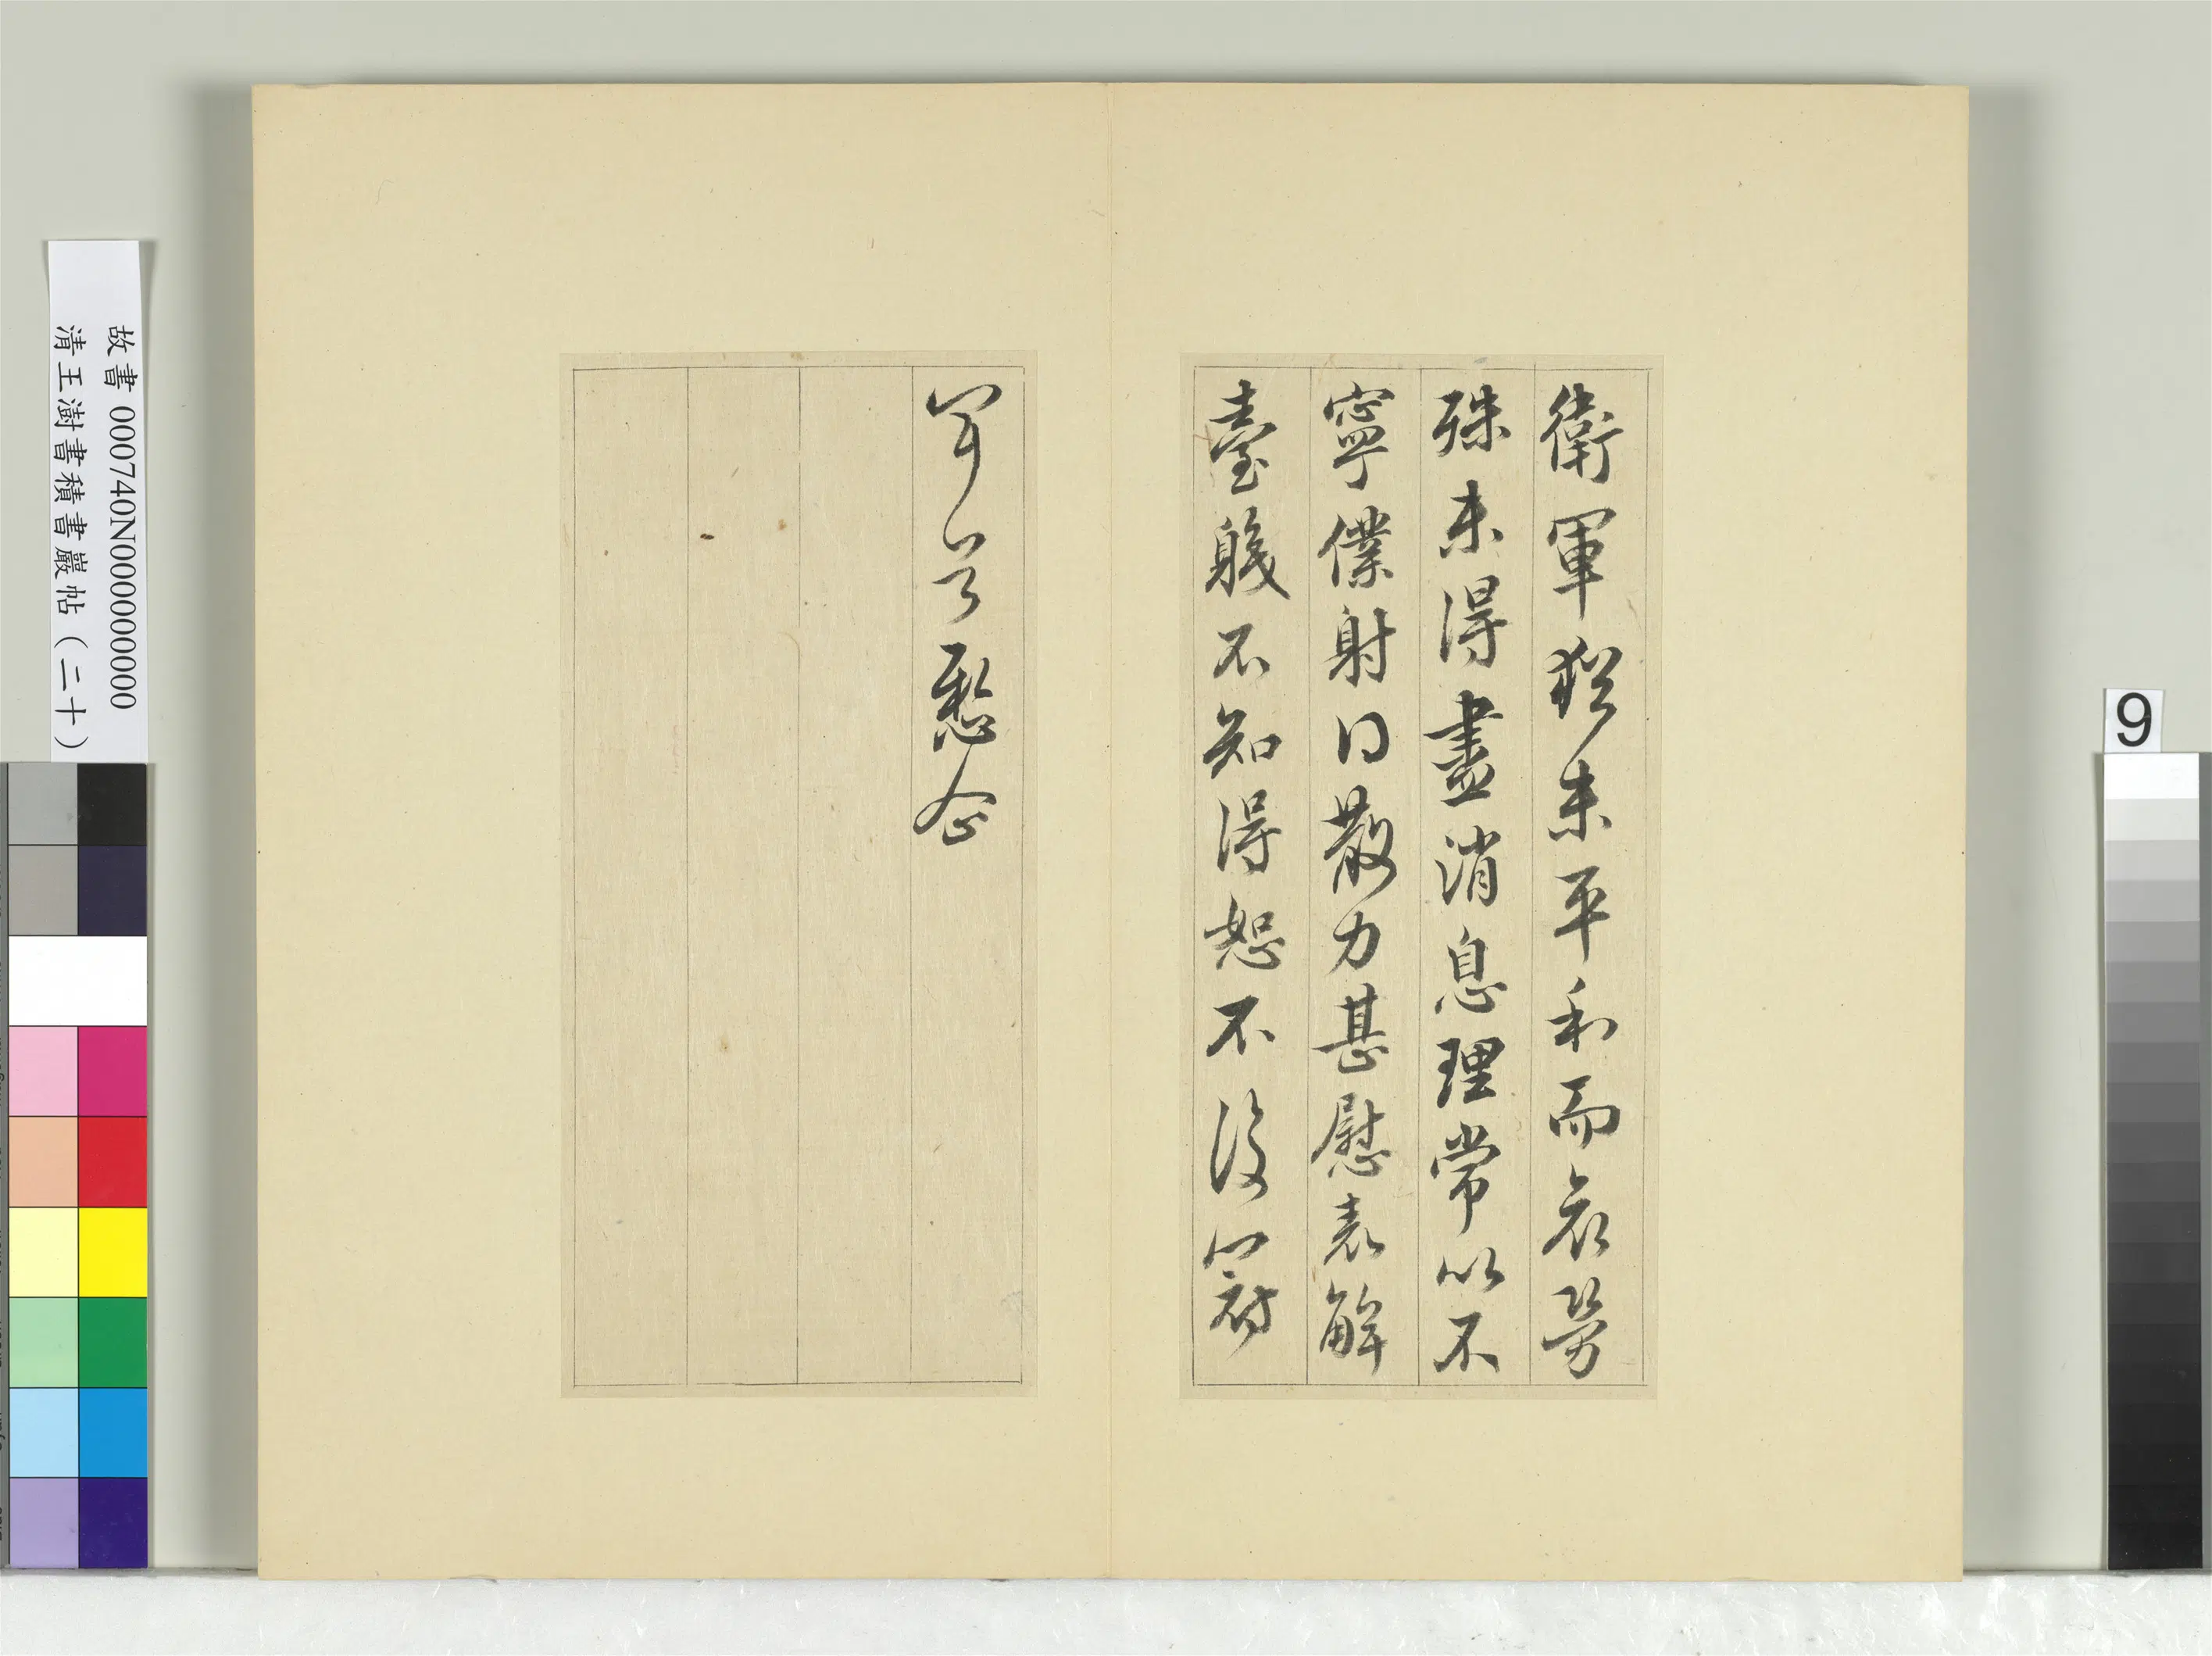 衛軍猶未平和而哀勞
殊未得盡消息理常以不
寧僕射日散力甚慰表解
臺職不知得恕不復
愍念
故書 000740N000000000
清王澍書積書巖帖（二十）
9